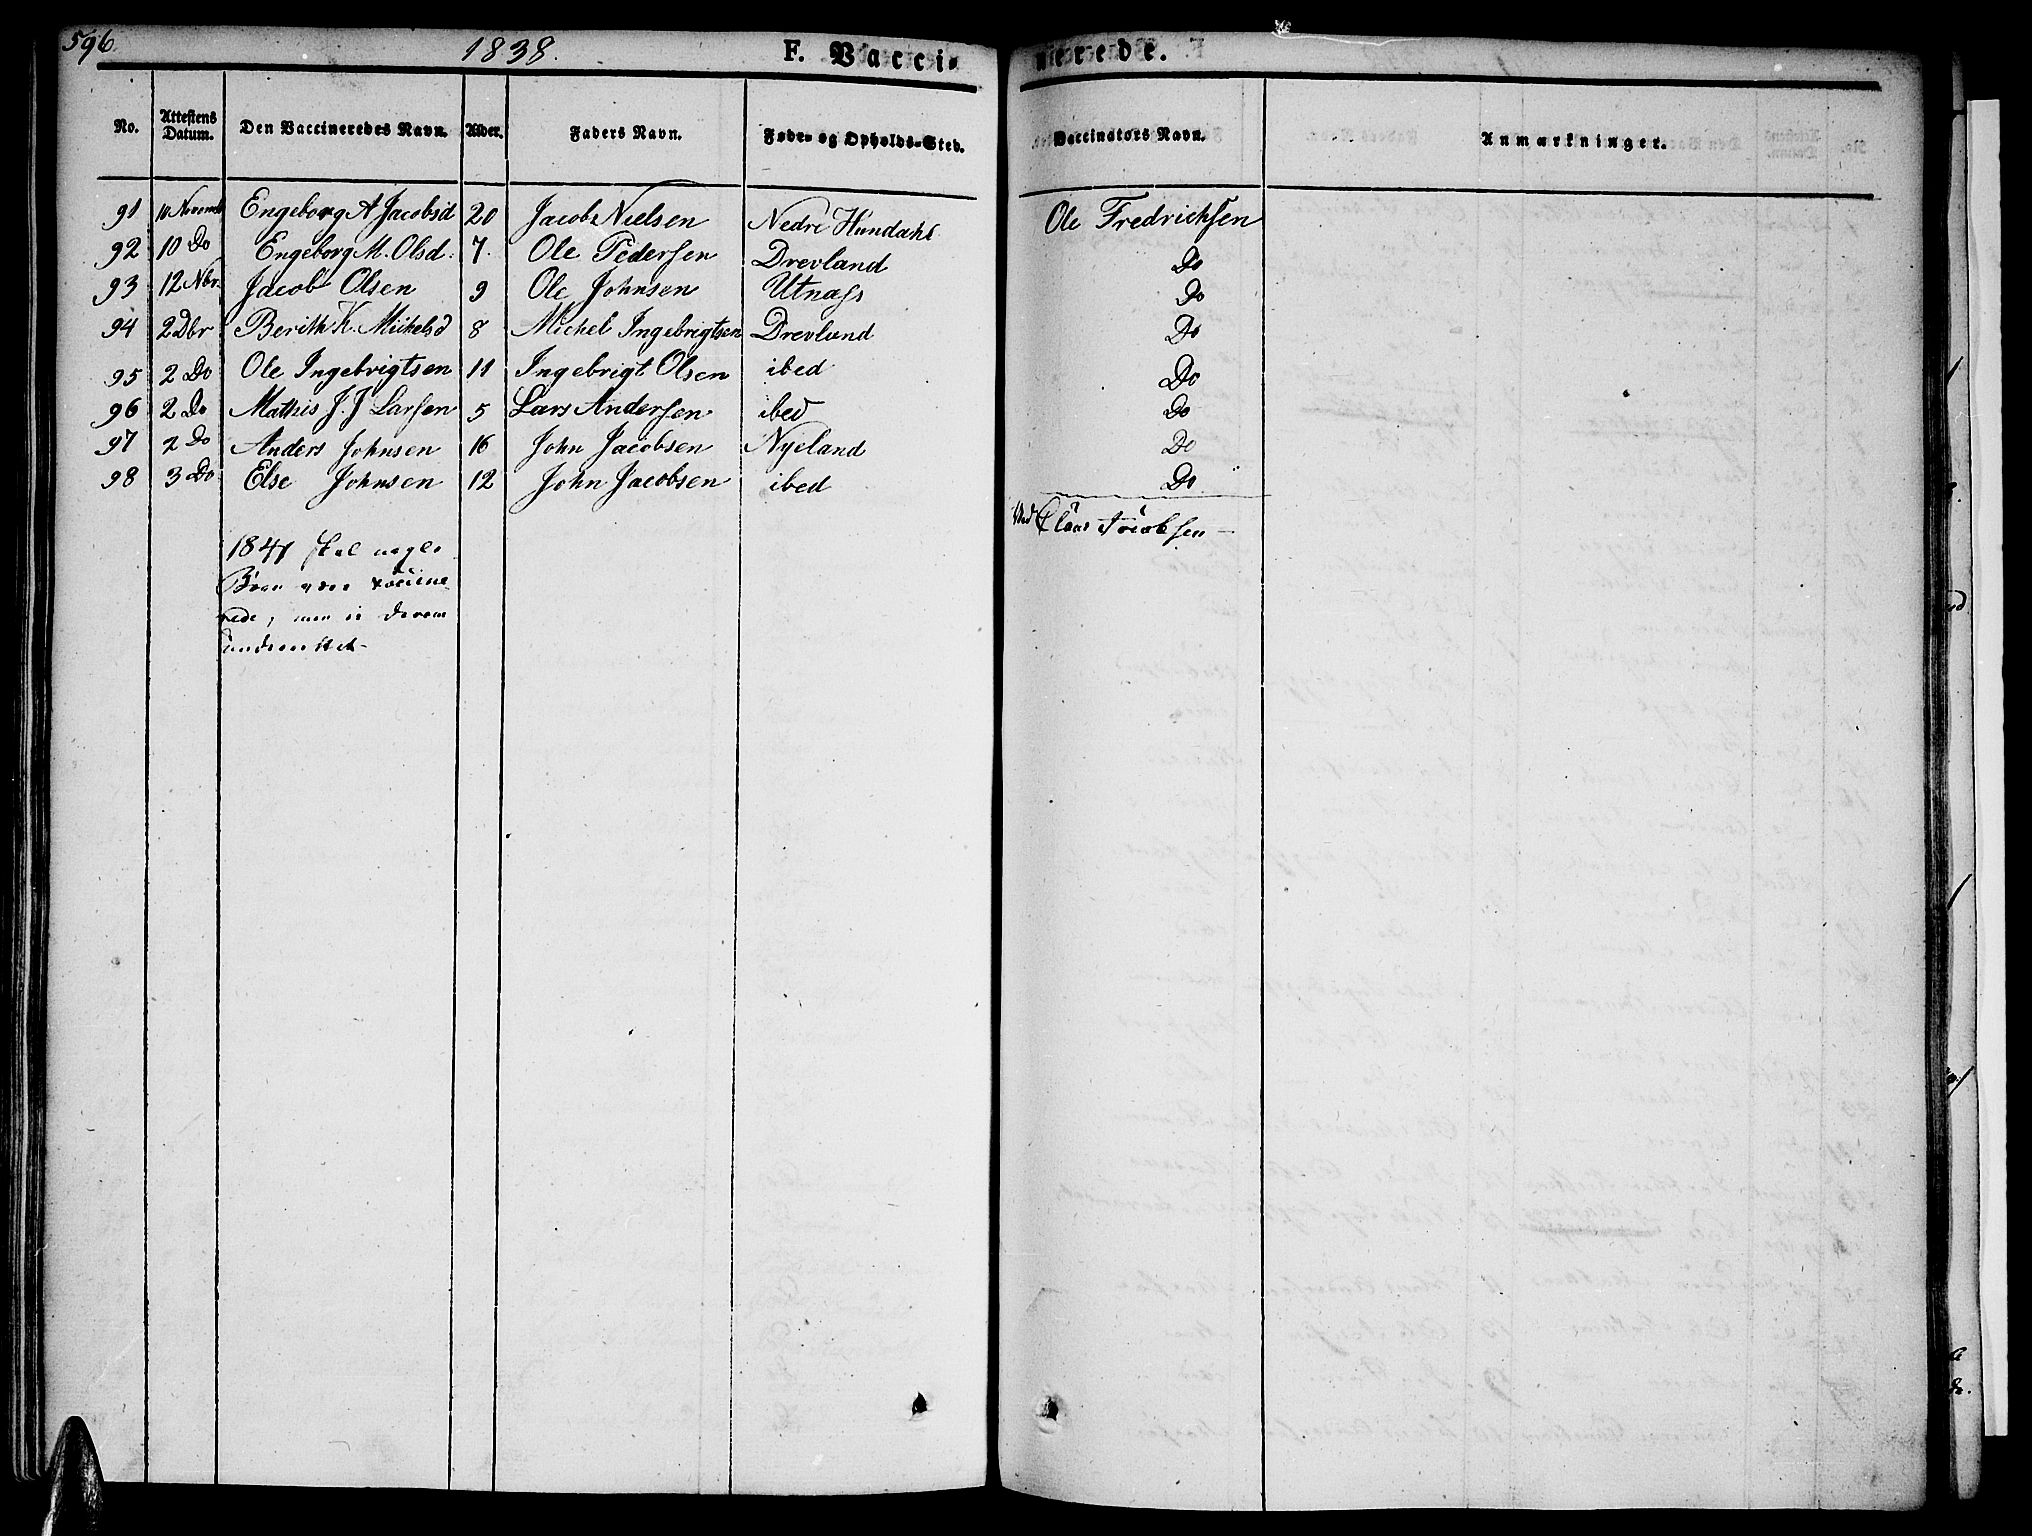 596. 1838. F. Vaccinerede.
No. Attestens Datum. Den Vaccineredes Navn. Alder. Faders Navn. Føde- og Opholds-Sted. Vaccinators Navn. Anmærkninger.
91 10 Novemb Engeborg A Jacobsd 20 Jacob Nielsen Nedre Hundahl Ole Fredrichsen
92 10 Do Engeborg M. Olsd. 7. Ole Pedersen Drevland Do
93 12 Nbr. Jacob Olsen 9 Ole Johnsen Utnæss Do
94 2 Dbr Berith K. Mickelsd 8 Michel Ingebrigtsen Drevland Do
95 2 Do Ole Ingebrigtsen 11 Ingebrigt Olsen ibed Do
96 2 Do Mathis J. J Larsen 5 Lars Andersen ibed Do
97 2 Do Anders Johnsen 16 John Jacobsen Nyeland Do
98 3 Do Else Johnsen 12 John Jacobsen ibed Do
1841 skal nogle Ved Claus Jacobsen –
Børn være vaccine
rede, men ei derom